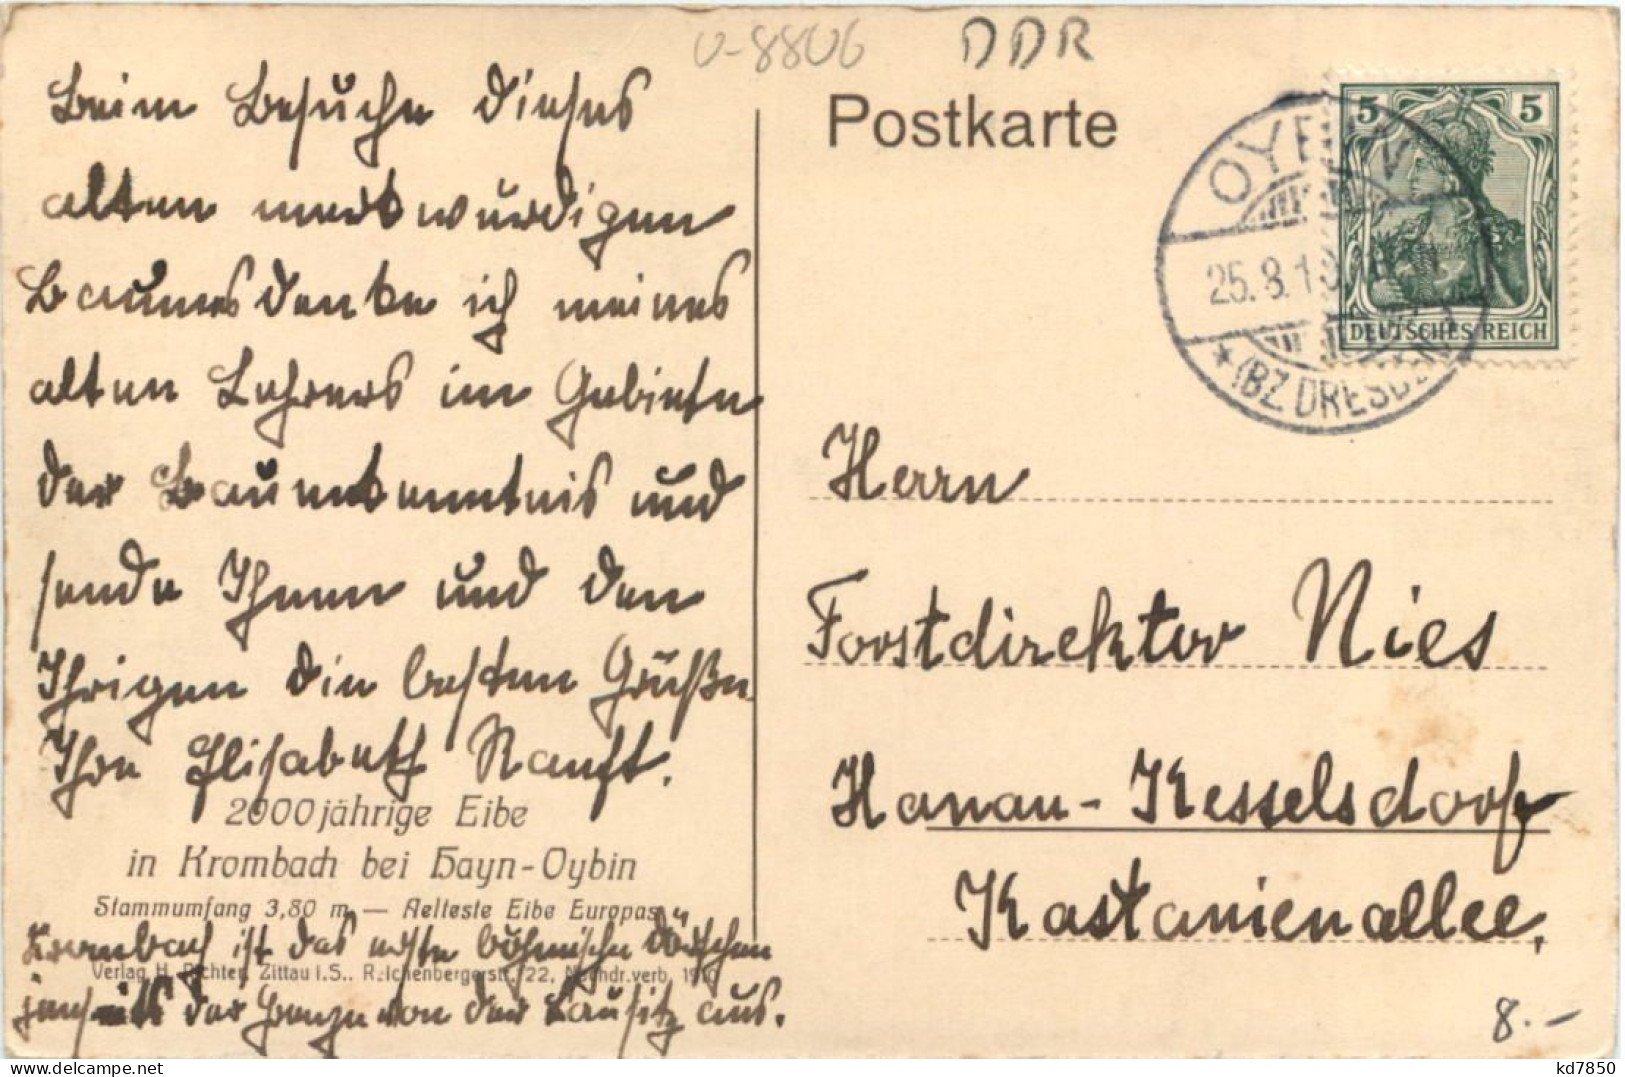 U-8806 DDR
Beim Besuche dieses
alten merkwürdigen
Baumes denke ich meines
alten Lehrers im Gebiete
der Baumkenntnis und
sende Ihnen und den
Ihrigen die besten Grüße
Ihre Elisabeth Ranft.
2000jährige Eibe
in Krombach bei Hayn-Oybin
Stammumfang 3,80 m — Aelteste Eibe Europas
Krombach ist das erste böhmische Dörfchen
Verlag H. Richter, Zittau i. S., Reichenbergerstr. 22. Nachdr. verb. 1910
jenseits der Grenze von der Lausitz aus.
Postkarte
5 5
DEUTSCHES REICH
OYBIN
25.8.1
* (BZ. DRESDEN)
Herrn
Forstdirektor Nies
Hanau-Kesselsdorf
Kastanienallee.
8.-
kd7850